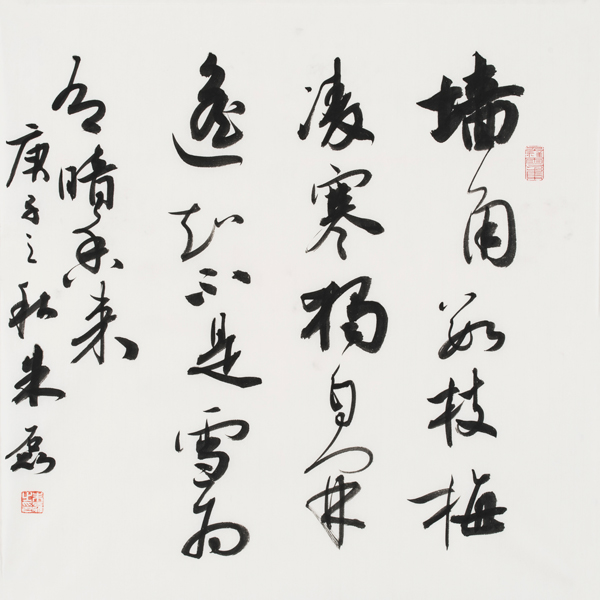 墙角数枝梅
凌寒独自开
遥知不是雪为
有暗香来
庚子之秋朱磊